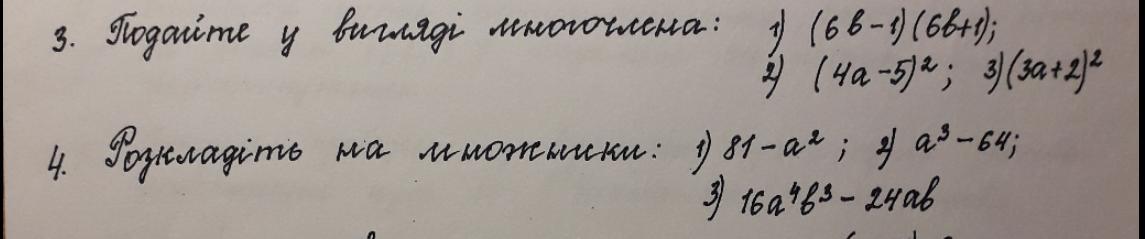 3. Подайте у вигляді многочлена: 1) (6b-1)(6b+1);
2) (4a-5)²; 3) (3a+2)²
4. Розкладіть на множники: 1) 81-a²; 2) a³-64;
3) 16a⁴b³-24ab